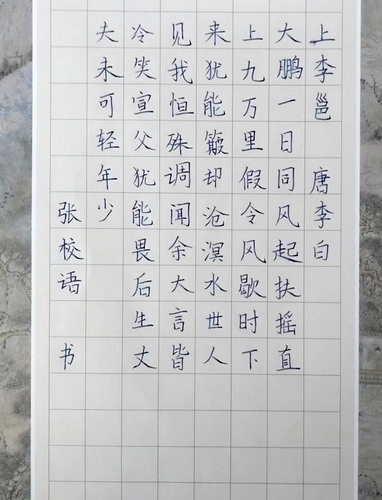 上李邕 唐李白
大鹏一日同风起扶摇直
上九万里假令风歇时下
来犹能簸却沧溟水世人
见我恒殊调闻余大言皆
冷笑宣父犹能畏后生丈
夫未可轻年少
张校语 书